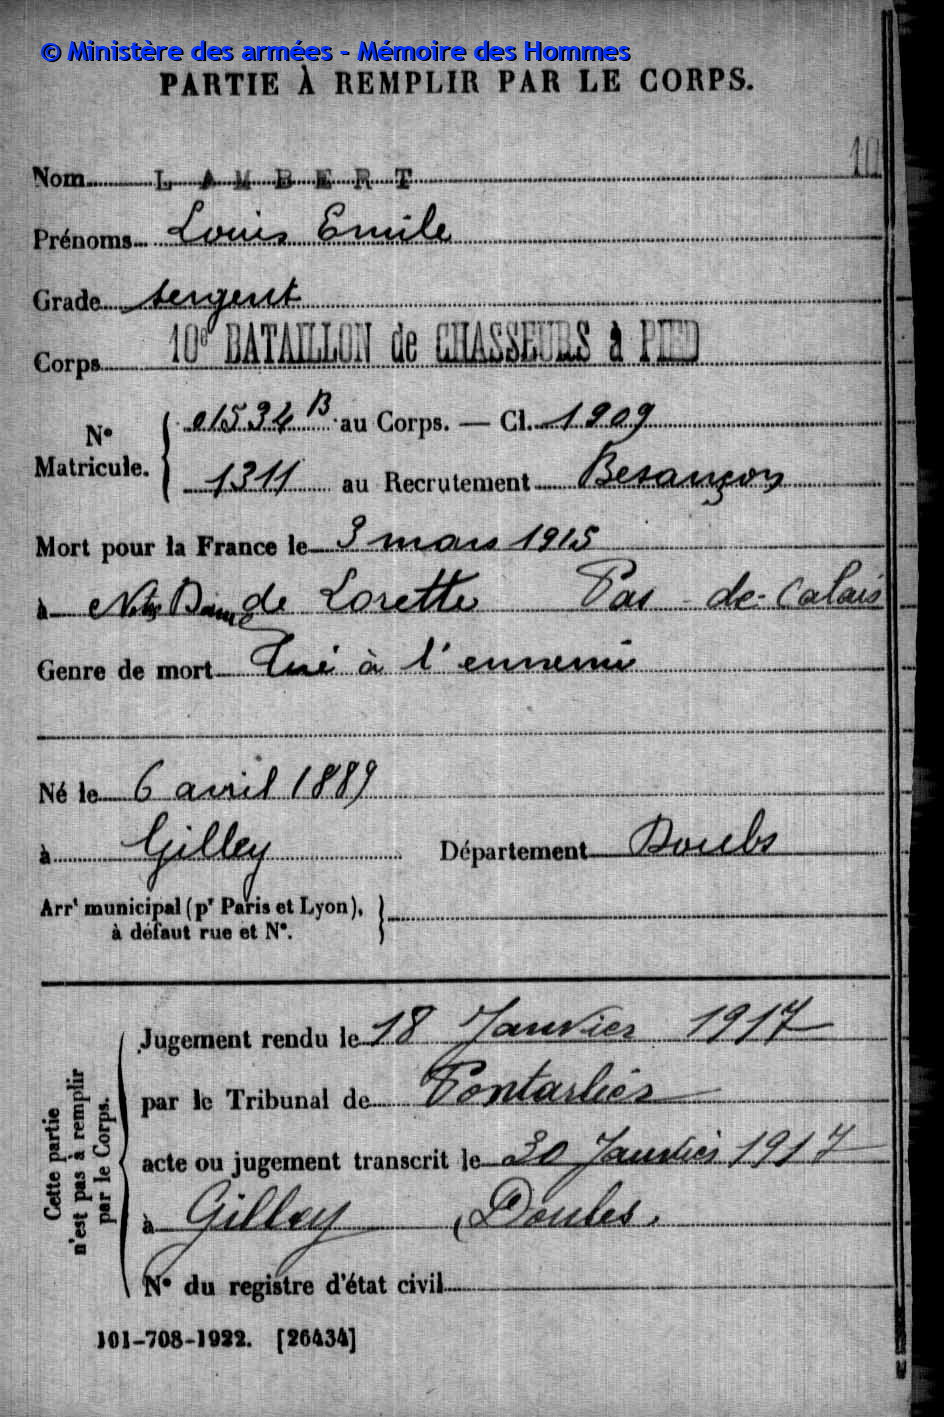 © Ministère des armées - Mémoire des Hommes
PARTIE À REMPLIR PAR LE CORPS.
10
Nom LAMBERT
Prénoms Louis Emile
Grade sergent
Corps 10e BATAILLON de CHASSEURS à PIED
N° Matricule. 01534 B au Corps. — Cl. 1909
1311 au Recrutement Besançon
Mort pour la France le 3 mars 1915
à Notre Dame de Lorette Pas-de-Calais
Genre de mort Tué à l'ennemi
Né le 6 avril 1889
à Gilley Département Doubs
Arrt municipal (pr Paris et Lyon),
à défaut rue et N°.
Cette partie
n'est pas à remplir
par le Corps.
Jugement rendu le 18 Janvier 1917
par le Tribunal de Pontarlier
acte ou jugement transcrit le 30 Janvier 1917
à Gilley (Doubs)
N° du registre d'état civil
101-708-1922. [26434]